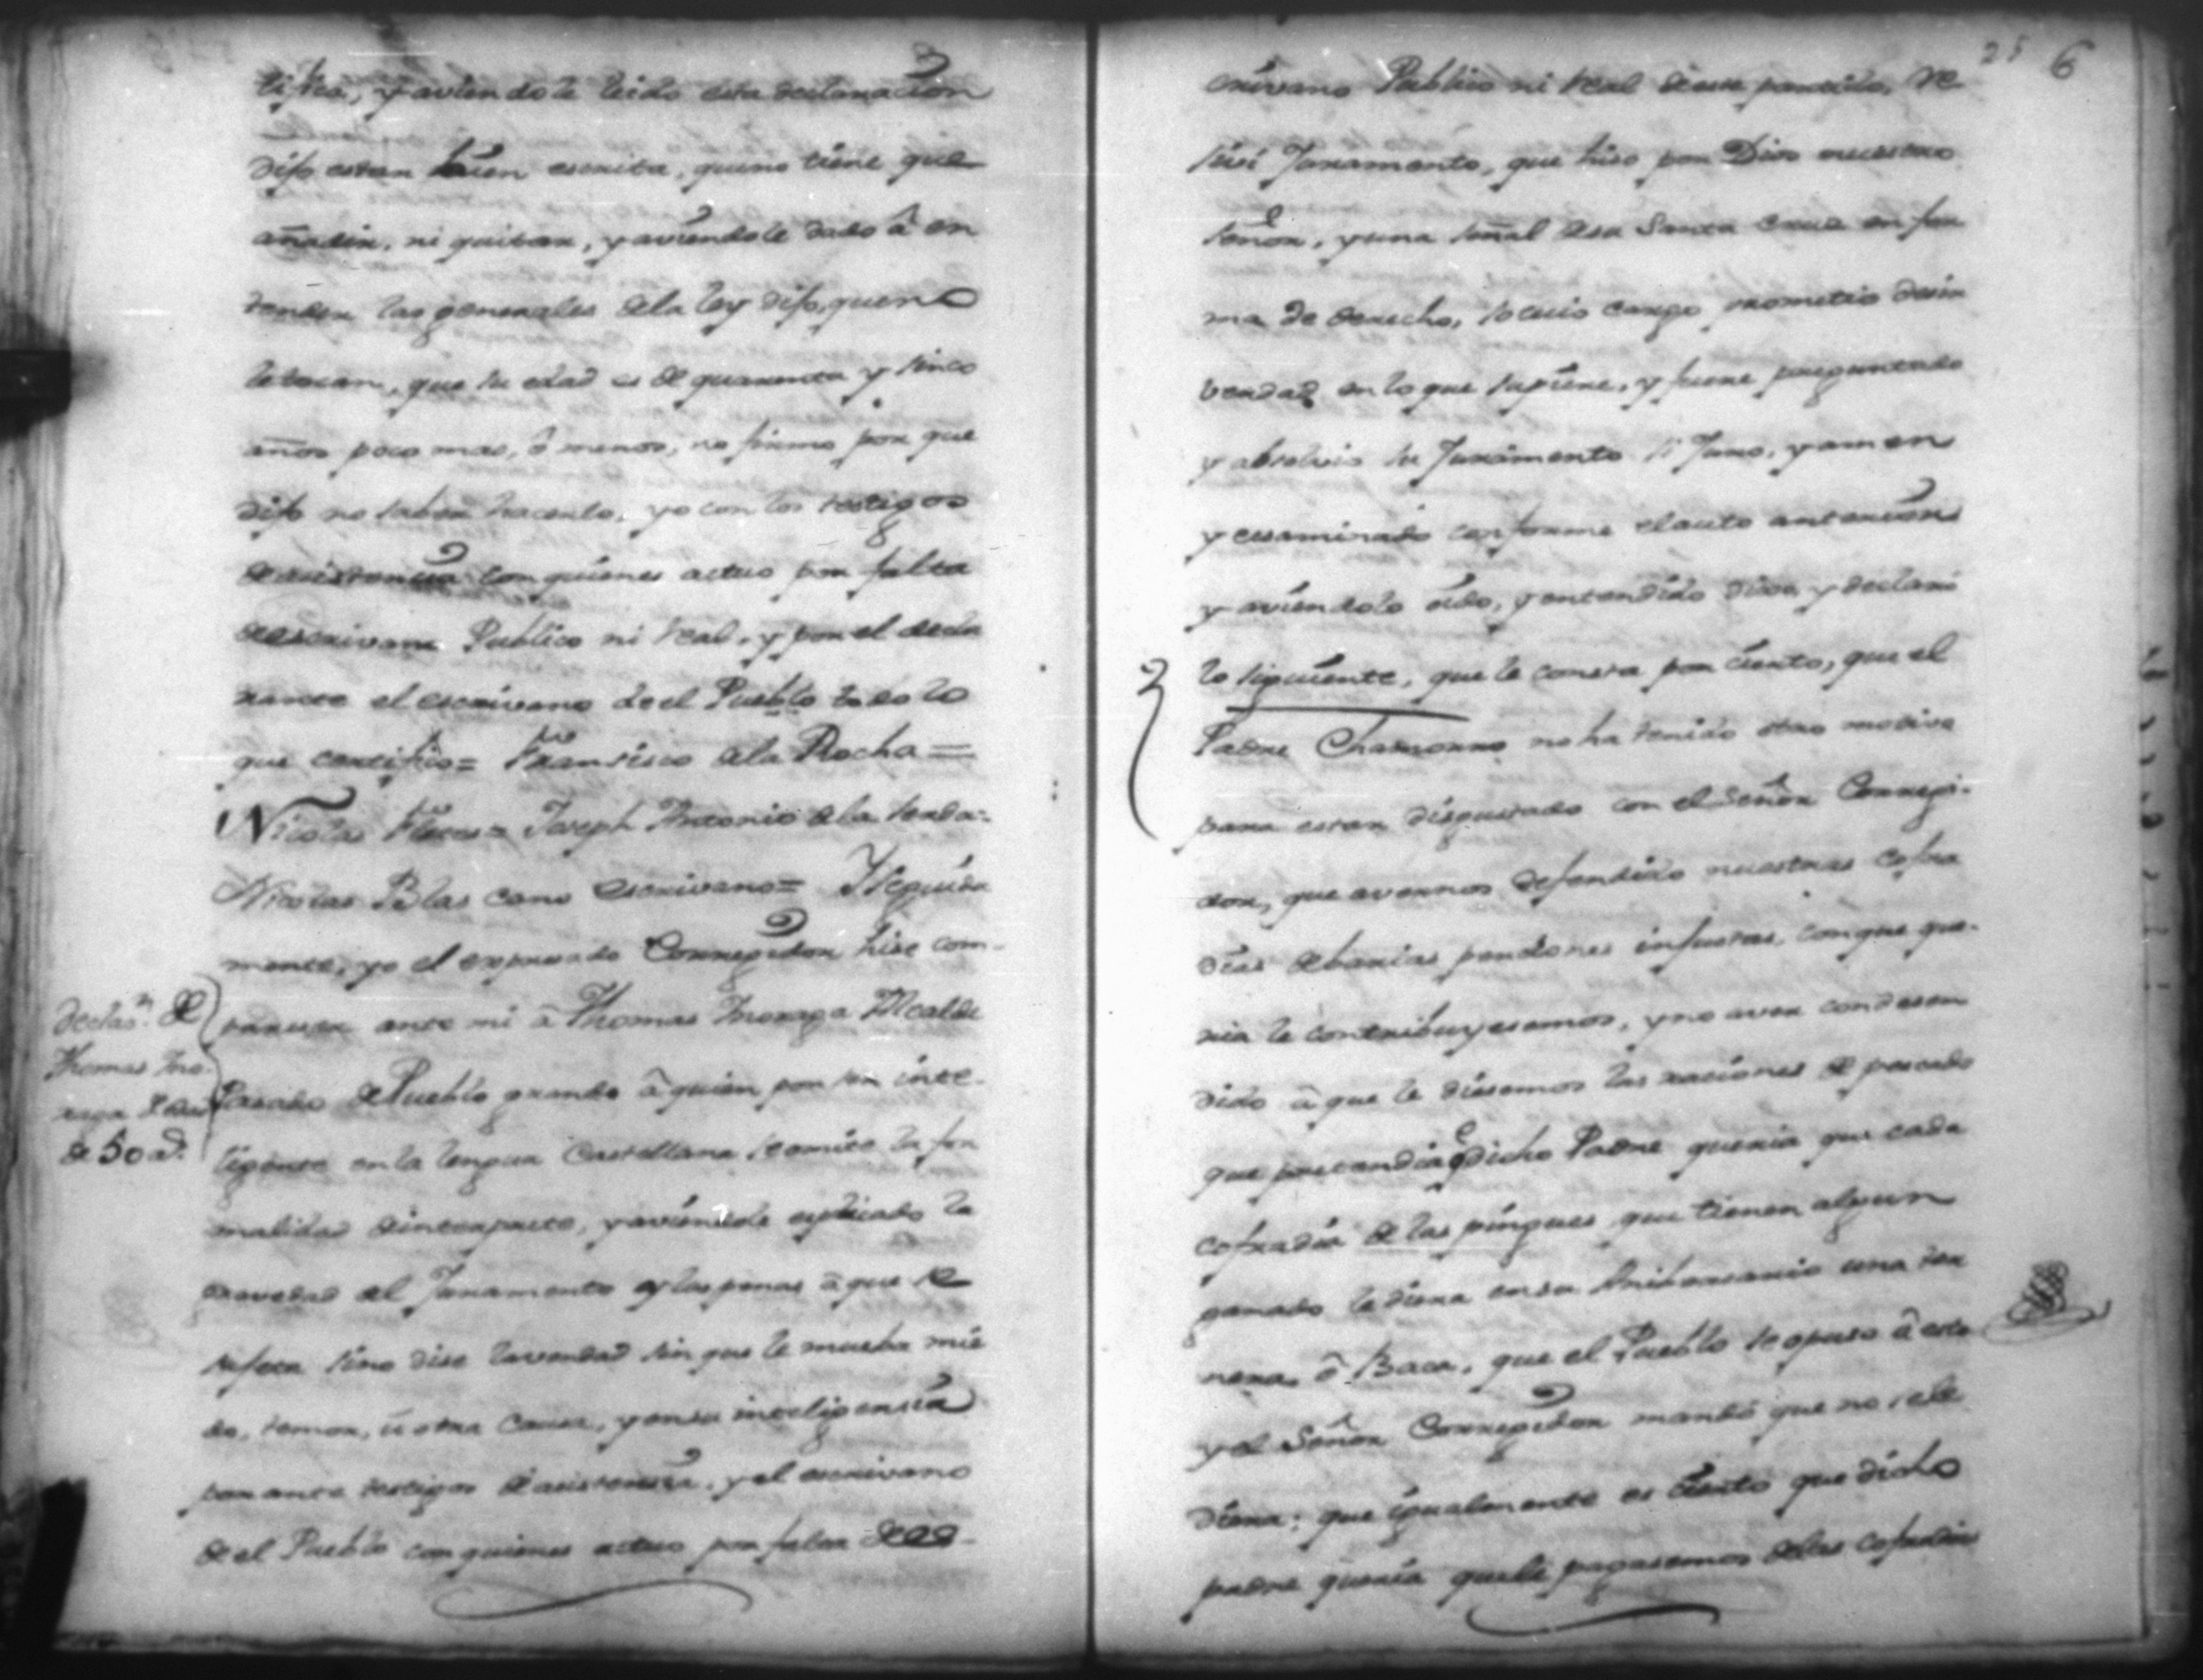 tifica, y aviendole leido esta declaracion
dijo estar bien escrita, que no tiene que
añadir, ni quitar, y aviendole dado â en
tender las generales dela ley dijo, que no
le tocan, que su edad es de quarenta y sinco
años poco mas, ô menos, no firmo por que
dijo no saber hacerlo, yo con los testigos
de asistencia con quienes actuo por falta
de escrivano Publico ni Real, y por el decla
rante el escrivano de el Pueblo todo lo
que certifico = Fransisco dela Rocha =
Nicolas Flores = Joseph Antonio dela Serda =
Nicolas Blas como escrivano = Y seguida
mente, yo el expresado Corregidor hise com-
pareser ante mi â Thomas Alcalde
Declas.n de
Thomas
de 50 a.s
Pasado de Pueblo grande â quien por ser inte-
ligente en la lengua Castellana se omite la for
malidad de interprete, y aviendole explicado la
gravedad del Juramento y las penas â que se
sujeta sino dise la verdad sin que le mueba mie
do, temor, û otra causa, y en su inteligensia
por ante testigos de asistensia, y el escrivano
de el Pueblo con quienes actuo por falta de es-
25 6
crivano Publico ni Real de este partido, re
sivi Juramento, que hiso por Dios nuestro
señor, y una señal de su Santa Cruz en for
ma de derecho, so cuio cargo prometio desir
verdad en lo que supiere, y fuere preguntado
y absolvio su Juramento si Juro, y amen
y examinado conforme el auto anterior
y aviendolo oido, y entendido dixo, y declaró
lo siguiente, que le consta por cierto, que el
Padre Chamorro no ha tenido otro motivo
para estar disgustado con el Señor Corregi-
dor, que avernos defendido nuestras cofra
dias de barias pensiones injustas, con que que-
ria le contribuyesemos, y no aver condesen
dido â que le diesemos las raciones de pescado
que pretendia dicho Padre queria que cada
cofradia de las pingues que tienen algun
ganado le diera en su Anibersario una ter
nera, ô Baca, que el Pueblo se opuso â esto
y el Señor Corregidor mandó que no se le
diera; que igualmente es cierto que dicho
padre queria que le pagasemos delas cofradias